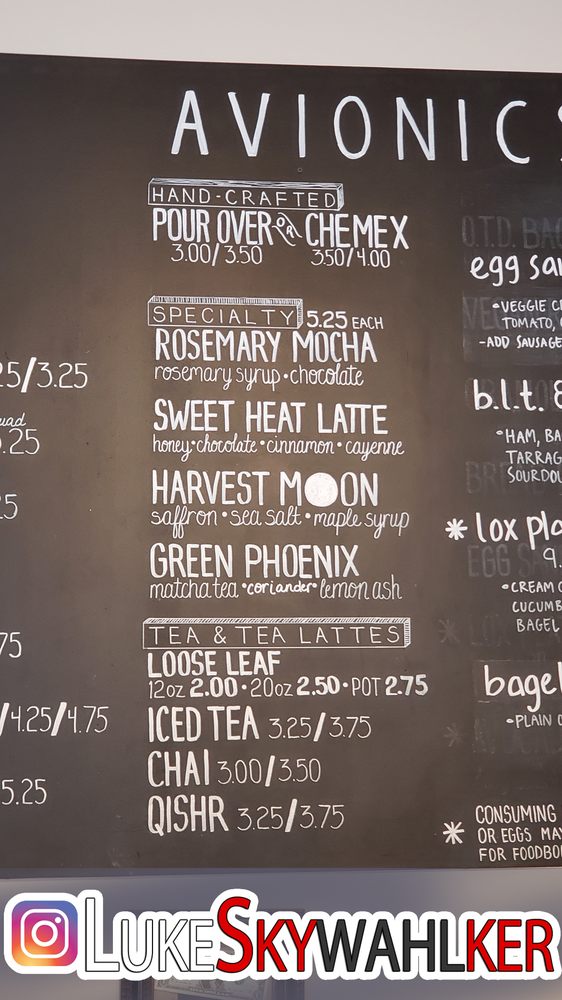 AVIONICS
HAND-CRAFTED
POUR OVER OR CHEMEX
3.00/3.50 3.50/4.00
SPECIALTY 5.25 EACH
ROSEMARY MOCHA
rosemary syrup • chocolate
SWEET HEAT LATTE
honey • chocolate • cinnamon • cayenne
HARVEST MOON
saffron • sea salt • maple syrup
GREEN PHOENIX
matcha tea • coriander • lemon ash
TEA & TEA LATTES
LOOSE LEAF
12oz 2.00 • 20oz 2.50 • POT 2.75
ICED TEA 3.25/3.75
CHAI 3.00/3.50
QISHR 3.25/3.75
5/3.25
.25
5
75
/4.25/4.75
5.25
egg sa
•VEGGIE C
TOMATO,
-ADD SAUSAGE
b.l.t. &
•HAM, BA
TARRAG
SOURDOU
* lox pla
9.
•CREAM C
CUCUMB
BAGEL
bagel
•PLAIN
* CONSUMING
OR EGGS MAY
FOR FOODBO
LUKESKYWAHLKER